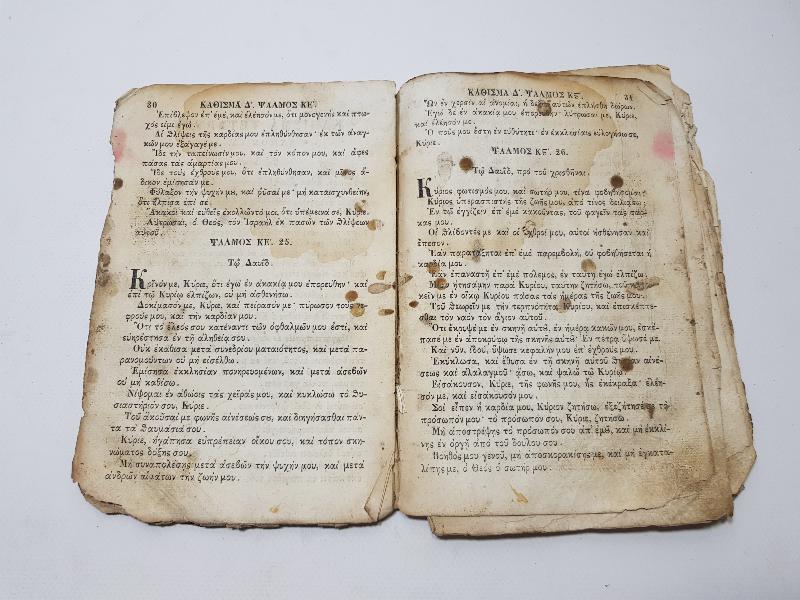 30 ΚΑΘΙΣΜΑ Δ'. ΨΑΛΜΟΣ ΚΕ'.
Ἐπίβλεψον ἐπ' ἐμὲ, καὶ ἐλέησόν με, ὅτι μονογενὴς καὶ πτω-
χός εἰμι ἐγώ.
Αἱ θλίψεις τῆς καρδίας μου ἐπληθύνθησαν· ἐκ τῶν ἀναγ-
κῶν μου ἐξάγαγέ με.
Ἴδε τὴν ταπείνωσίν μου, καὶ τὸν κόπον μου, καὶ ἄφες
πάσας τὰς ἁμαρτίας μου.
Ἴδε τοὺς ἐχθρούς μου, ὅτι ἐπληθύνθησαν, καὶ μῖσος ἄ-
δικον ἐμίσησάν με.
Φύλαξον τὴν ψυχήν μου, καὶ ῥῦσαί με· μὴ καταισχυνθείην,
ὅτι ἤλπισα ἐπὶ σέ.
Ἄκακοι καὶ εὐθεῖς ἐκολλῶντό μοι, ὅτι ὑπέμεινά σε, Κύριε.
Λύτρωσαι, ὁ Θεὸς, τὸν Ἰσραὴλ ἐκ πασῶν τῶν θλίψεων
αὐτοῦ.
ΨΑΛΜΟΣ ΚΕ'. 25.
Τῷ Δαυΐδ.
Κρῖνόν με, Κύριε, ὅτι ἐγὼ ἐν ἀκακίᾳ μου ἐπορεύθην· καὶ
ἐπὶ τῷ Κυρίῳ ἐλπίζων, οὐ μὴ ἀσθενήσω.
Δοκίμασόν με, Κύριε, καὶ πείρασόν με· πύρωσον τοὺς νε-
φρούς μου, καὶ τὴν καρδίαν μου.
Ὅτι τὸ ἔλεός σου κατέναντι τῶν ὀφθαλμῶν μου ἐστὶ, καὶ
εὐηρέστησα ἐν τῇ ἀληθείᾳ σου.
Οὐκ ἐκάθισα μετὰ συνεδρίου ματαιότητος, καὶ μετὰ πα-
ρανομούντων οὐ μὴ εἰσέλθω.
Ἐμίσησα ἐκκλησίαν πονηρευομένων, καὶ μετὰ ἀσεβῶν
οὐ μὴ καθίσω.
Νίψομαι ἐν ἀθώοις τὰς χεῖράς μου, καὶ κυκλώσω τὸ θυ-
σιαστήριόν σου, Κύριε.
Τοῦ ἀκοῦσαί με φωνῆς αἰνέσεώς σου, καὶ διηγήσασθαι πάν-
τα τὰ θαυμάσιά σου.
Κύριε, ἠγάπησα εὐπρέπειαν οἴκου σου, καὶ τόπον σκη-
νώματος δόξης σου.
Μὴ συναπολέσῃς μετὰ ἀσεβῶν τὴν ψυχήν μου, καὶ μετὰ
ἀνδρῶν αἱμάτων τὴν ζωήν μου.
ΚΑΘΙΣΜΑ Δ'. ΨΑΛΜΟΣ Κϛ'. 31
Ὧν ἐν χερσὶν αἱ ἀνομίαι, ἡ δεξιὰ αὐτῶν ἐπλήσθη δώρων.
Ἐγὼ δὲ ἐν ἀκακίᾳ μου ἐπορεύθην· λύτρωσαί με, Κύριε,
καὶ ἐλέησόν με.
Ὁ πούς μου ἔστη ἐν εὐθύτητι· ἐν ἐκκλησίαις εὐλογήσω σε,
Κύριε.
ΨΑΛΜΟΣ Κϛ'. 26.
Τῷ Δαυΐδ, πρὸ τοῦ χρισθῆναι.
Κύριος φωτισμός μου, καὶ σωτήρ μου, τίνα φοβηθήσομαι;
Κύριος ὑπερασπιστὴς τῆς ζωῆς μου, ἀπὸ τίνος δειλιάσω;
Ἐν τῷ ἐγγίζειν ἐπ' ἐμὲ κακοῦντας, τοῦ φαγεῖν τὰς σάρ-
κας μου.
Οἱ θλίβοντές με καὶ οἱ ἐχθροί μου, αὐτοὶ ἠσθένησαν καὶ
ἔπεσον.
Ἐὰν παρατάξηται ἐπ' ἐμὲ παρεμβολὴ, οὐ φοβηθήσεται ἡ
καρδία μου.
Ἐὰν ἐπαναστῇ ἐπ' ἐμὲ πόλεμος, ἐν ταύτῃ ἐγὼ ἐλπίζω.
Μίαν ᾐτησάμην παρὰ Κυρίου, ταύτην ζητήσω, τοῦ κατοι-
κεῖν με ἐν οἴκῳ Κυρίου πάσας τὰς ἡμέρας τῆς ζωῆς μου.
Τοῦ θεωρεῖν με τὴν τερπνότητα Κυρίου, καὶ ἐπισκέπτε-
σθαι τὸν ναὸν τὸν ἅγιον αὐτοῦ.
Ὅτι ἔκρυψέ με ἐν σκηνῇ αὐτοῦ, ἐν ἡμέρᾳ κακῶν μου, ἐσκέ-
πασέ με ἐν ἀποκρύφῳ τῆς σκηνῆς αὐτοῦ· Ἐν πέτρᾳ ὕψωσέ με.
Καὶ νῦν, ἰδοὺ, ὕψωσε κεφαλήν μου ἐπ' ἐχθρούς μου.
Ἐκύκλωσα, καὶ ἔθυσα ἐν τῇ σκηνῇ αὐτοῦ θυσίαν αἰνέ-
σεως καὶ ἀλαλαγμοῦ· ᾄσω, καὶ ψαλῶ τῷ Κυρίῳ.
Εἰσάκουσον, Κύριε, τῆς φωνῆς μου, ἧς ἐκέκραξα· ἐλέη-
σόν με, καὶ εἰσάκουσόν μου.
Σοὶ εἶπεν ἡ καρδία μου, Κύριον ζητήσω, ἐξεζήτησέ σε τὸ
πρόσωπόν μου· τὸ πρόσωπόν σου, Κύριε, ζητήσω.
Μὴ ἀποστρέψῃς τὸ πρόσωπόν σου ἀπ' ἐμοῦ, καὶ μὴ ἐκκλί-
νῃς ἐν ὀργῇ ἀπὸ τοῦ δούλου σου.
Βοηθός μου γενοῦ, μὴ ἀποσκορακίσῃς με, καὶ μὴ ἐγκατα-
λίπῃς με, ὁ Θεὸς ὁ σωτήρ μου.